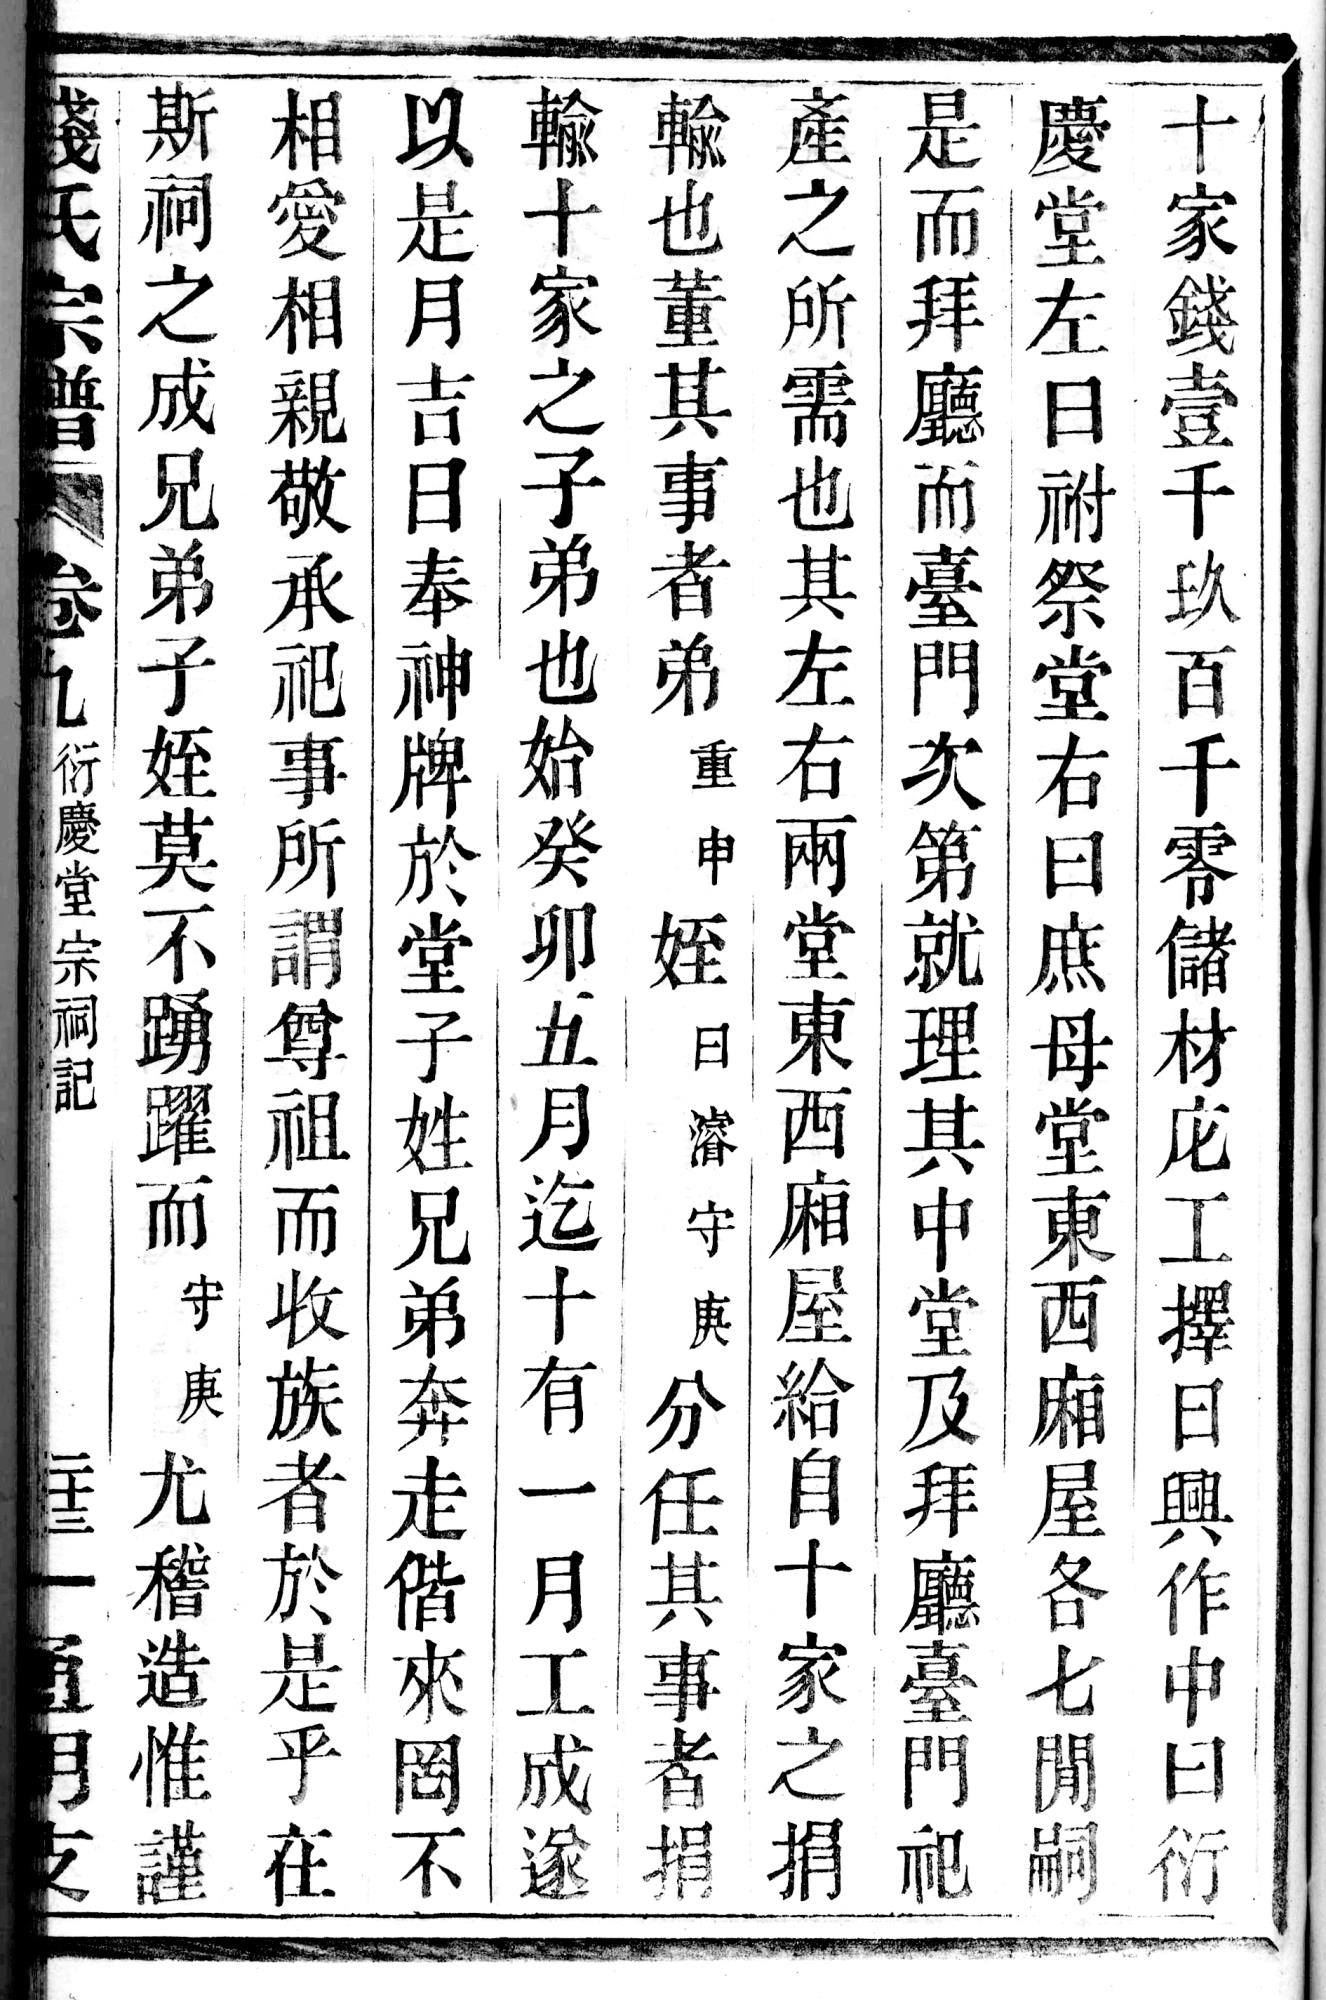 十家錢壹千玖百千零儲材庀工擇日興作中曰衍
慶堂左曰祔祭堂右曰庶母堂東西廂屋各七閒嗣
是而拜廳而臺門次第就理其中堂及拜廳臺門祀
產之所需也其左右兩堂東西廂屋給自十家之捐
輸也董其事者弟重申姪日濬守庚分任其事者捐
輸十家之子弟也始癸卯五月迄十有一月工成遂
以是月吉日奉神牌於堂子姓兄弟奔走偕來罔不
相愛相親敬承祀事所謂尊祖而收族者於是乎在
斯祠之成兄弟子姪莫不踴躍而守庚尤稽造惟謹
錢氏宗譜 卷九 衍慶堂宗祠記 二十三 一 通明支